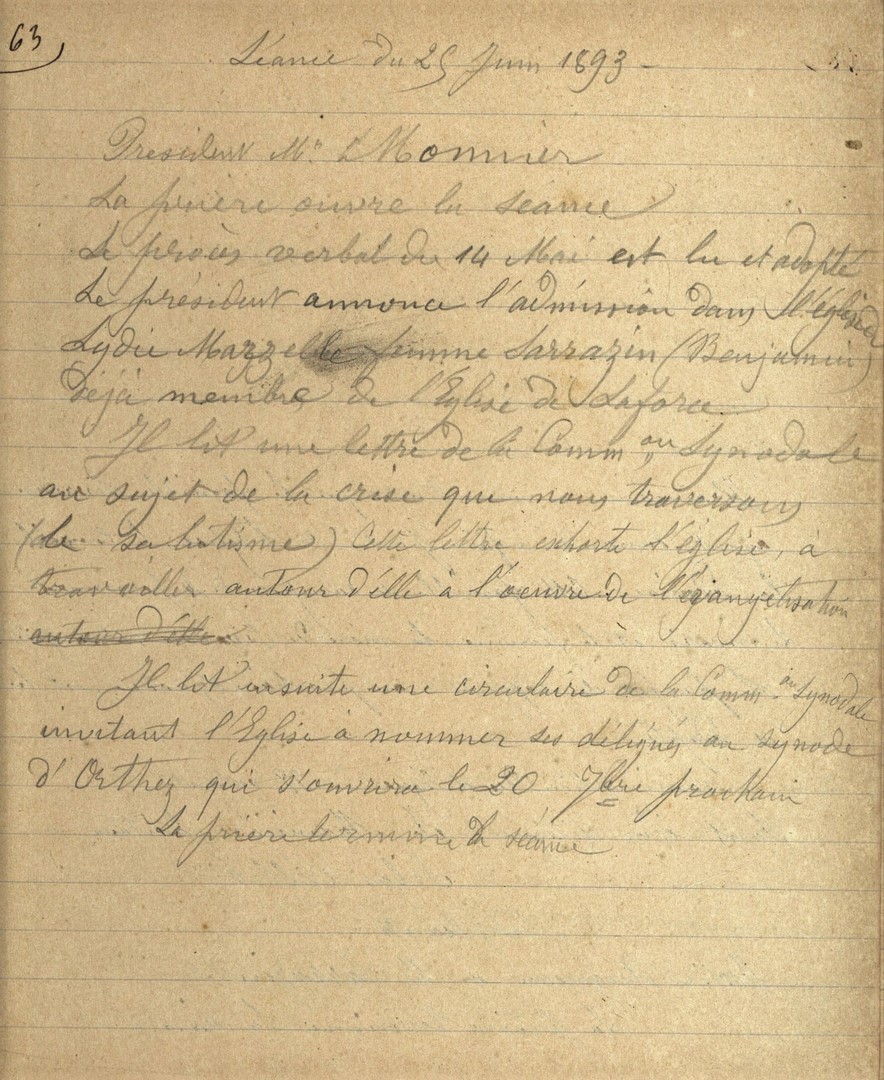 63
Séance du 25 Juin 1893 –
Président Mr L Monnier
La prière ouvre la séance
Le procès verbal du 14 Mai est lu et adopté
Le président annonce l'admission dans l'église de
Lydie Mazzel femme Sarrazin (Benjamin)
déjà membre de l'Eglise de Laforce
Il lit une lettre de la Comm.on Synodale
au sujet de la crise que nous traversons
(le salutisme) Cette lettre exhorte l'église, à
travailler autour d'elle à l'oeuvre de l'évangelisation
autour d'elle
Il lit ensuite une circulaire de la Comm.on Synodale
invitant l'Eglise à nommer ses délégués au synode
d'Orthez qui s'ouvrira le 20 7bre prochain
La prière termine la séance